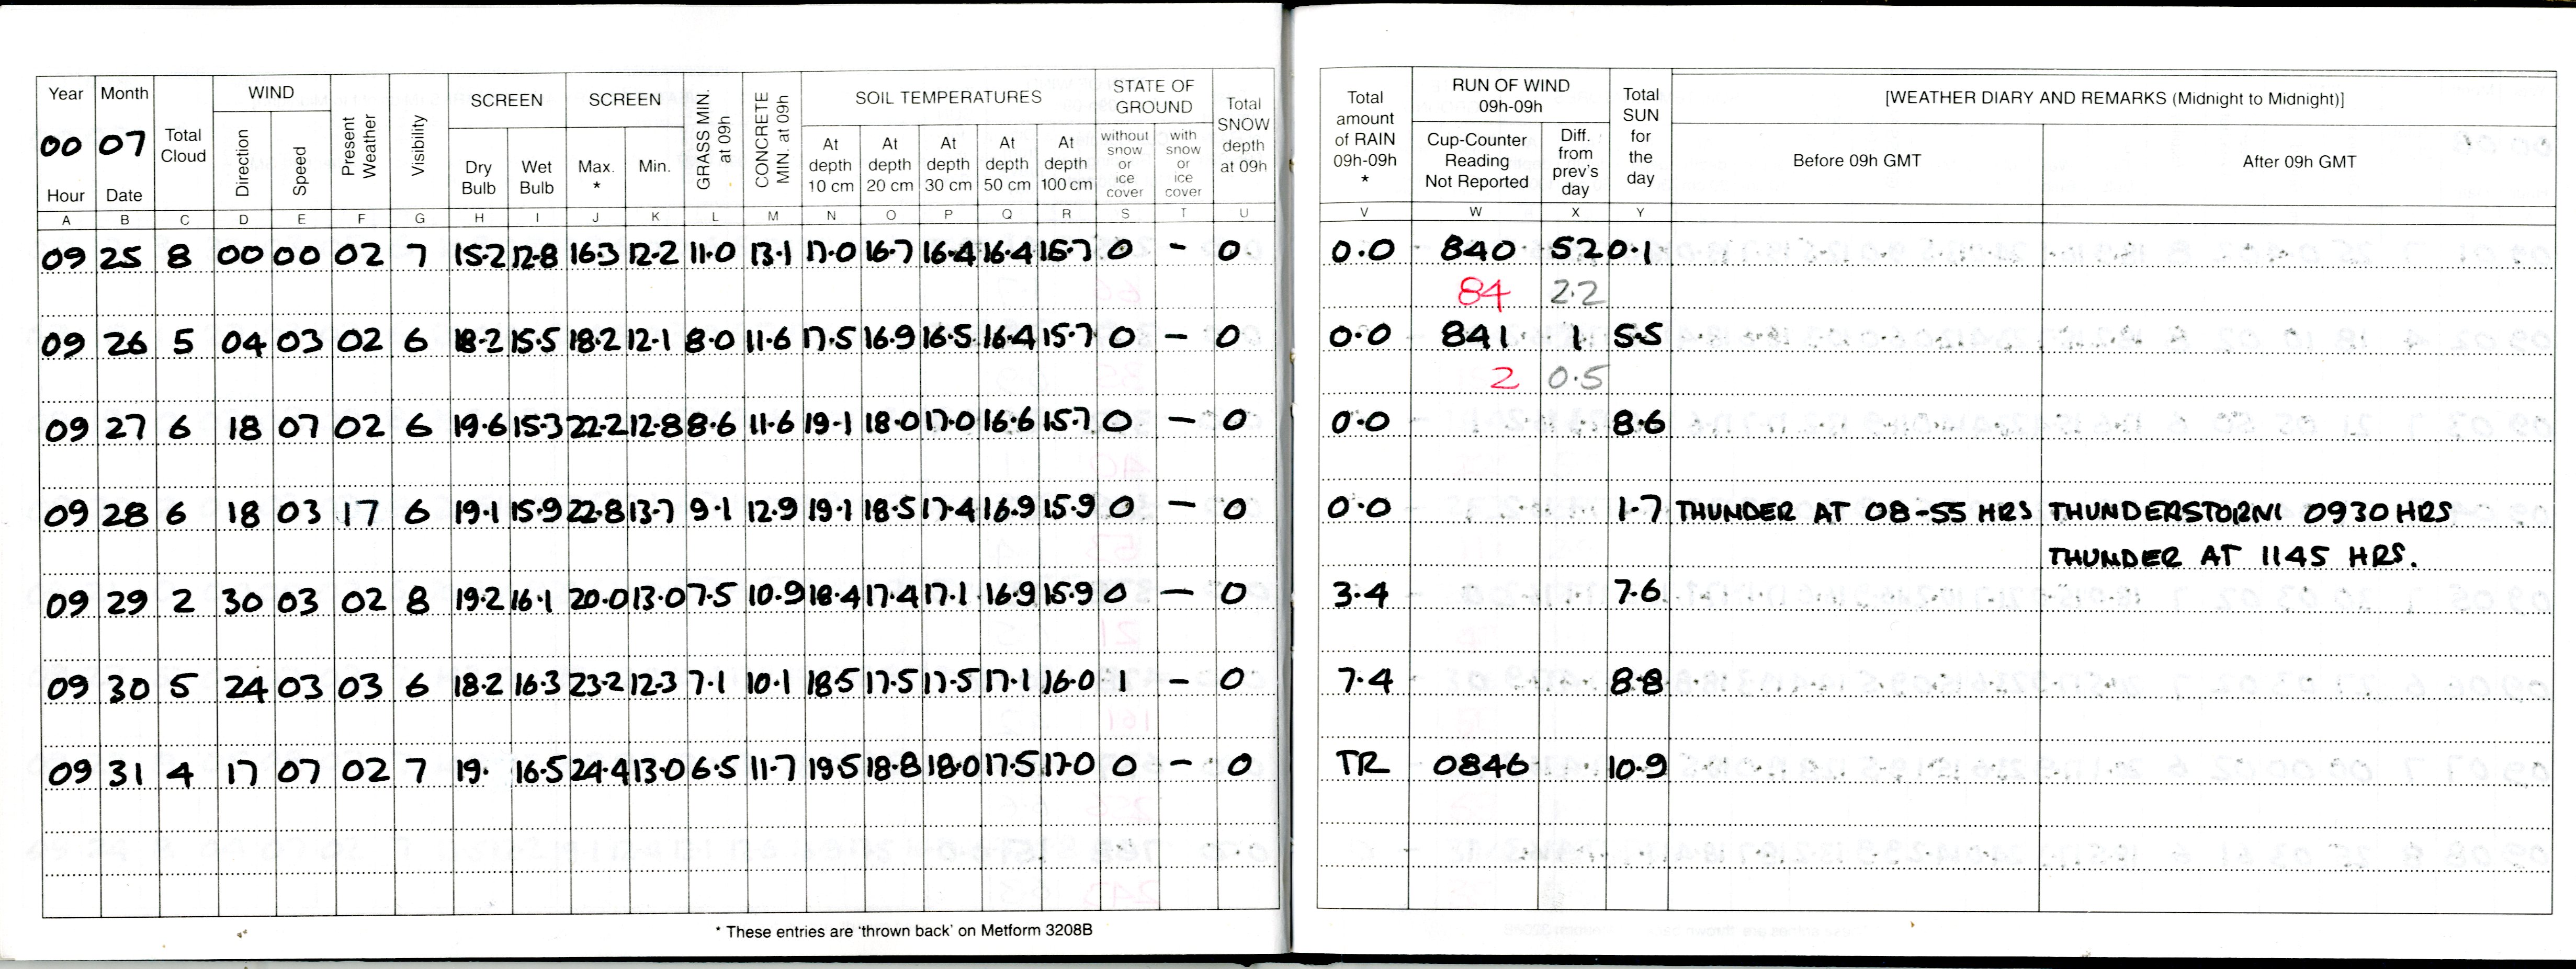 Year Month WIND SCREEN SCREEN SOIL TEMPERATURES STATE OF GROUND
00 07 Total Cloud Direction Speed Present Weather Visibility Dry Bulb Wet Bulb Max. * Min. GRASS MIN. at 09h CONCRETE MIN. at 09h At depth 10 cm At depth 20 cm At depth 30 cm At depth 50 cm At depth 100 cm without snow or ice cover with snow or ice cover Total SNOW depth at 09h
Hour Date
A B C D E F G H I J K L M N O P Q R S T U
09 25 8 00 00 02 7 15.2 12.8 16.3 12.2 11.0 13.1 17.0 16.7 16.4 16.4 15.7 0 - 0
09 26 5 04 03 02 6 18.2 15.5 18.2 12.1 8.0 11.6 17.5 16.9 16.5 16.4 15.7 0 - 0
09 27 6 18 07 02 6 19.6 15.3 22.2 12.8 8.6 11.6 19.1 18.0 17.0 16.6 15.7 0 - 0
09 28 6 18 03 17 6 19.1 15.9 22.8 13.7 9.1 12.9 19.1 18.5 17.4 16.9 15.9 0 - 0
09 29 2 30 03 02 8 19.2 16.1 20.0 13.0 7.5 10.9 18.4 17.4 17.1 16.9 15.9 0 - 0
09 30 5 24 03 03 6 18.2 16.3 23.2 12.3 7.1 10.1 18.5 17.5 17.5 17.1 16.0 1 - 0
09 31 4 17 07 02 7 19. 16.5 24.4 13.0 6.5 11.7 19.5 18.8 18.0 17.5 17.0 0 - 0
* These entries are 'thrown back' on Metform 3208B
Total amount of RAIN 09h-09h * RUN OF WIND 09h-09h Total SUN for the day [WEATHER DIARY AND REMARKS (Midnight to Midnight)]
Cup-Counter Reading Not Reported Diff. from prev's day Before 09h GMT After 09h GMT
V W X Y
0.0 840 52 0.1
84 2.2
0.0 841 1 5.5
2 0.5
0.0 8.6
0.0 1.7 THUNDER AT 08-55 HRS THUNDERSTORM 0930 HRS
THUNDER AT 1145 HRS.
3.4 7.6
7.4 8.8
TR 0846 10.9